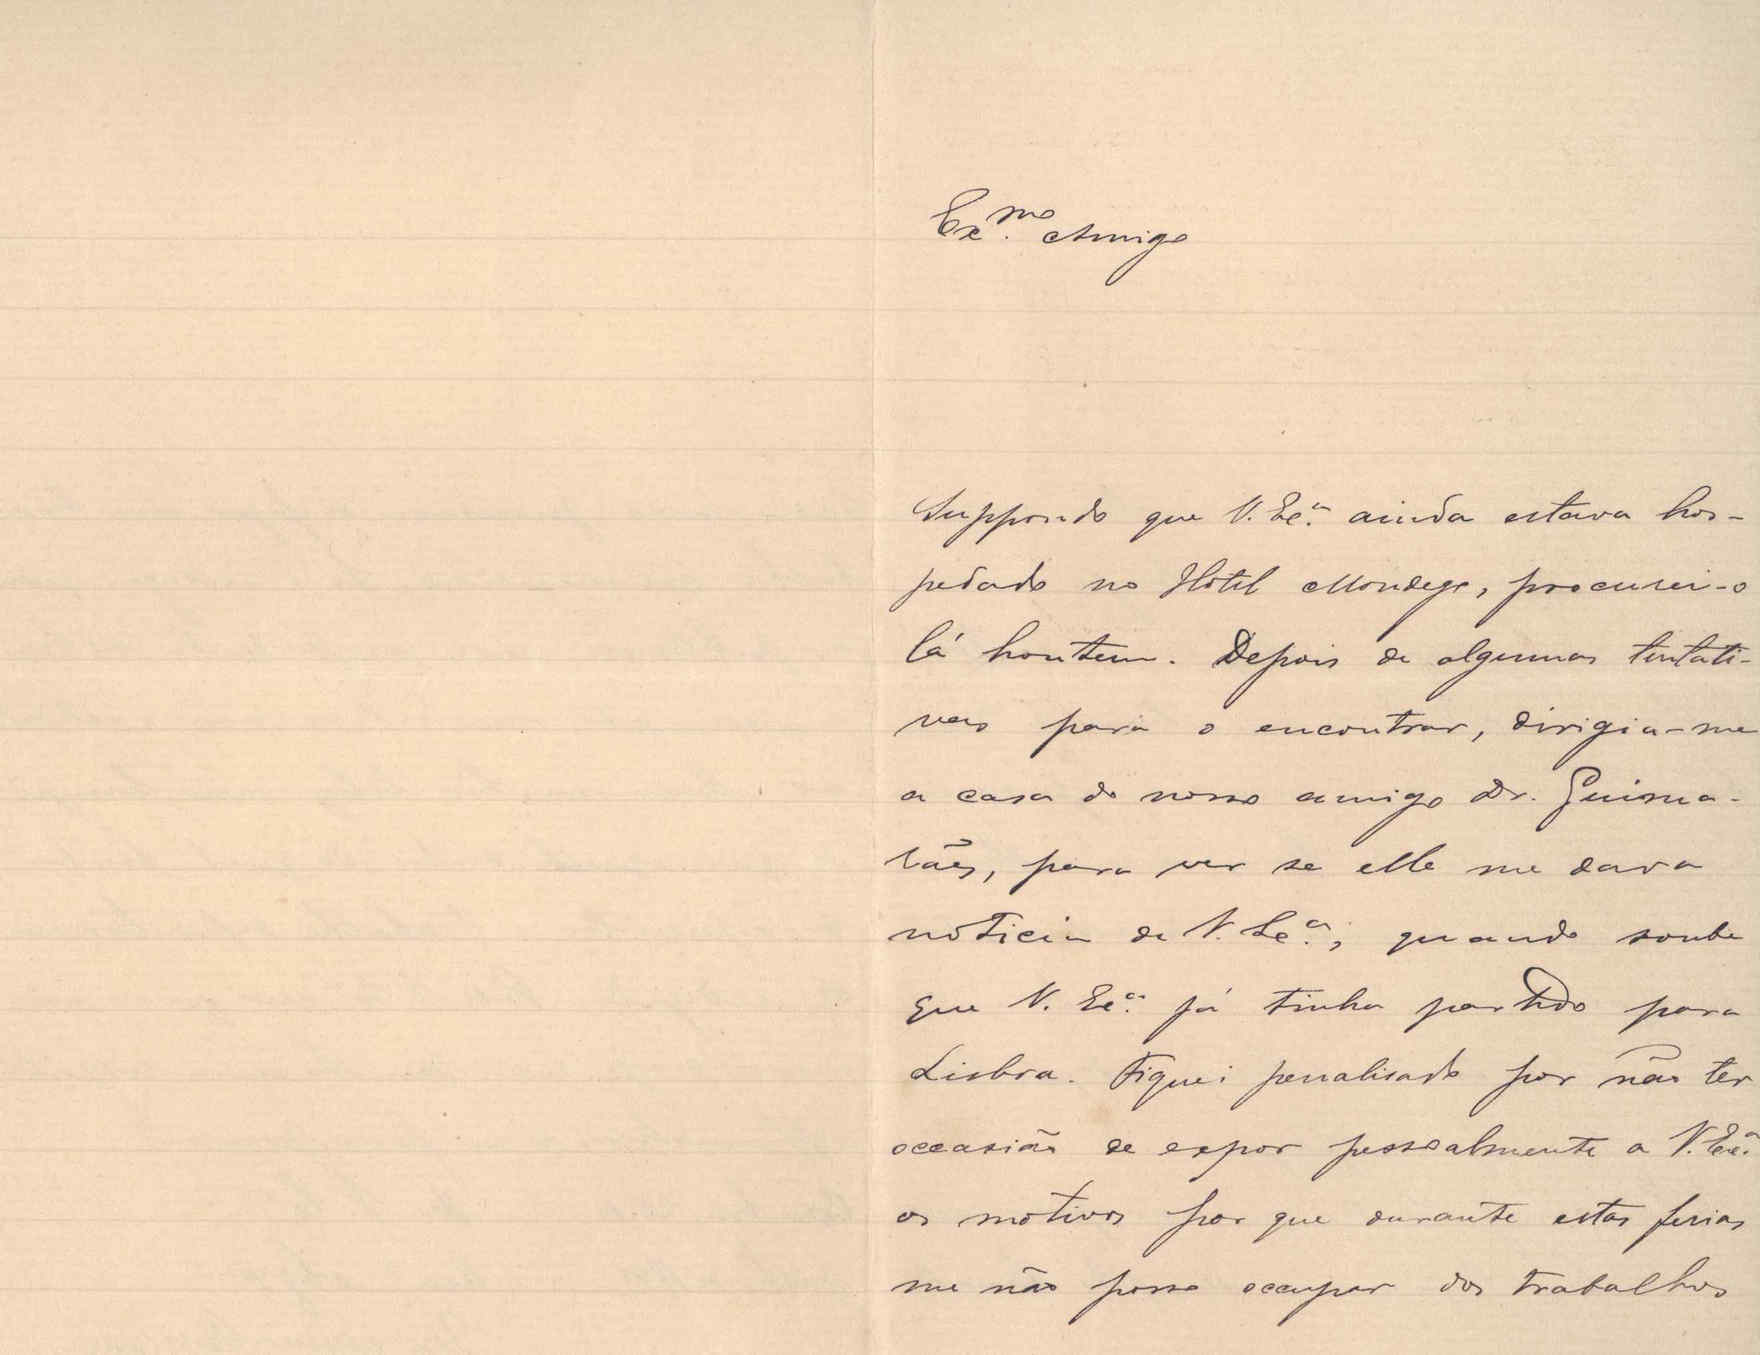 Ex.mo Amigo
Suppondo que V. Exª. ainda estava hos-
pedado no Hotel Mondego, procurei-o
lá hontem. Depois de algumas tentati-
vas para o encontrar, dirigia-me
a casa do nosso amigo Dr. Guima-
rães, para ver se elle me dava
noticia de V. Exª.; quando soube
que V. Exª. já tinha partido para
Lisboa. Fiquei penalisado por não ter
occasião de expor pessoalmente a V. Exª.
os motivos por que durante estas ferias
me não posso occupar dos trabalhos